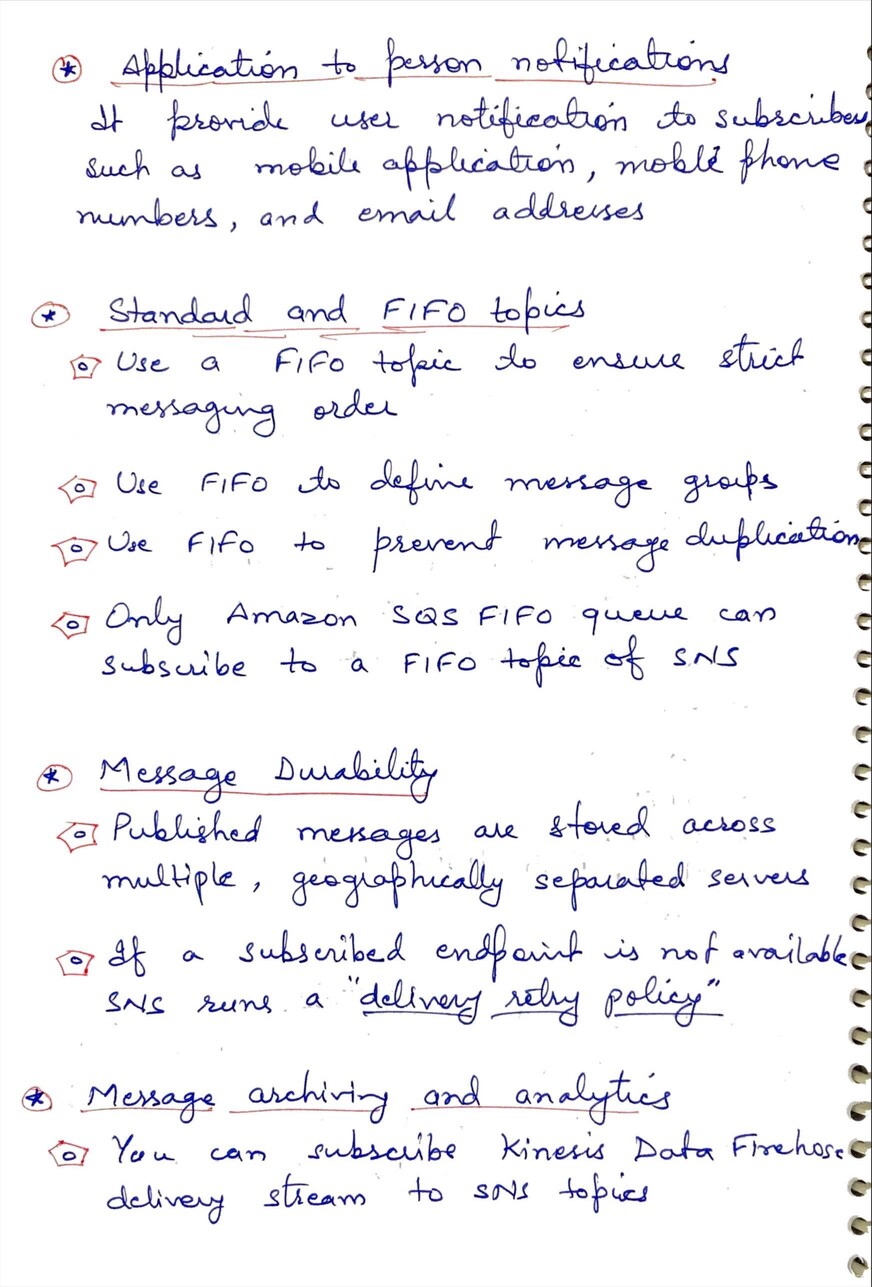 Application to person notifications
It provide user notification to subscribers
such as mobile application, moble phone
numbers, and email addresses
Standard and FIFO topics
Use a FIFO topic to ensure strict
messaging order
Use FIFO to define message groups
Use FIFO to prevent message duplication
Only Amazon SQS FIFO queue can
subscribe to a FIFO topic of SNS
Message Durability
Published messages are stored across
multiple, geographically separated servers
If a subscribed endpoint is not available
SNS runs a "delivery retry policy"
Message archiving and analytics
You can subscribe Kinesis Data Firehose
delivery stream to SNS topics